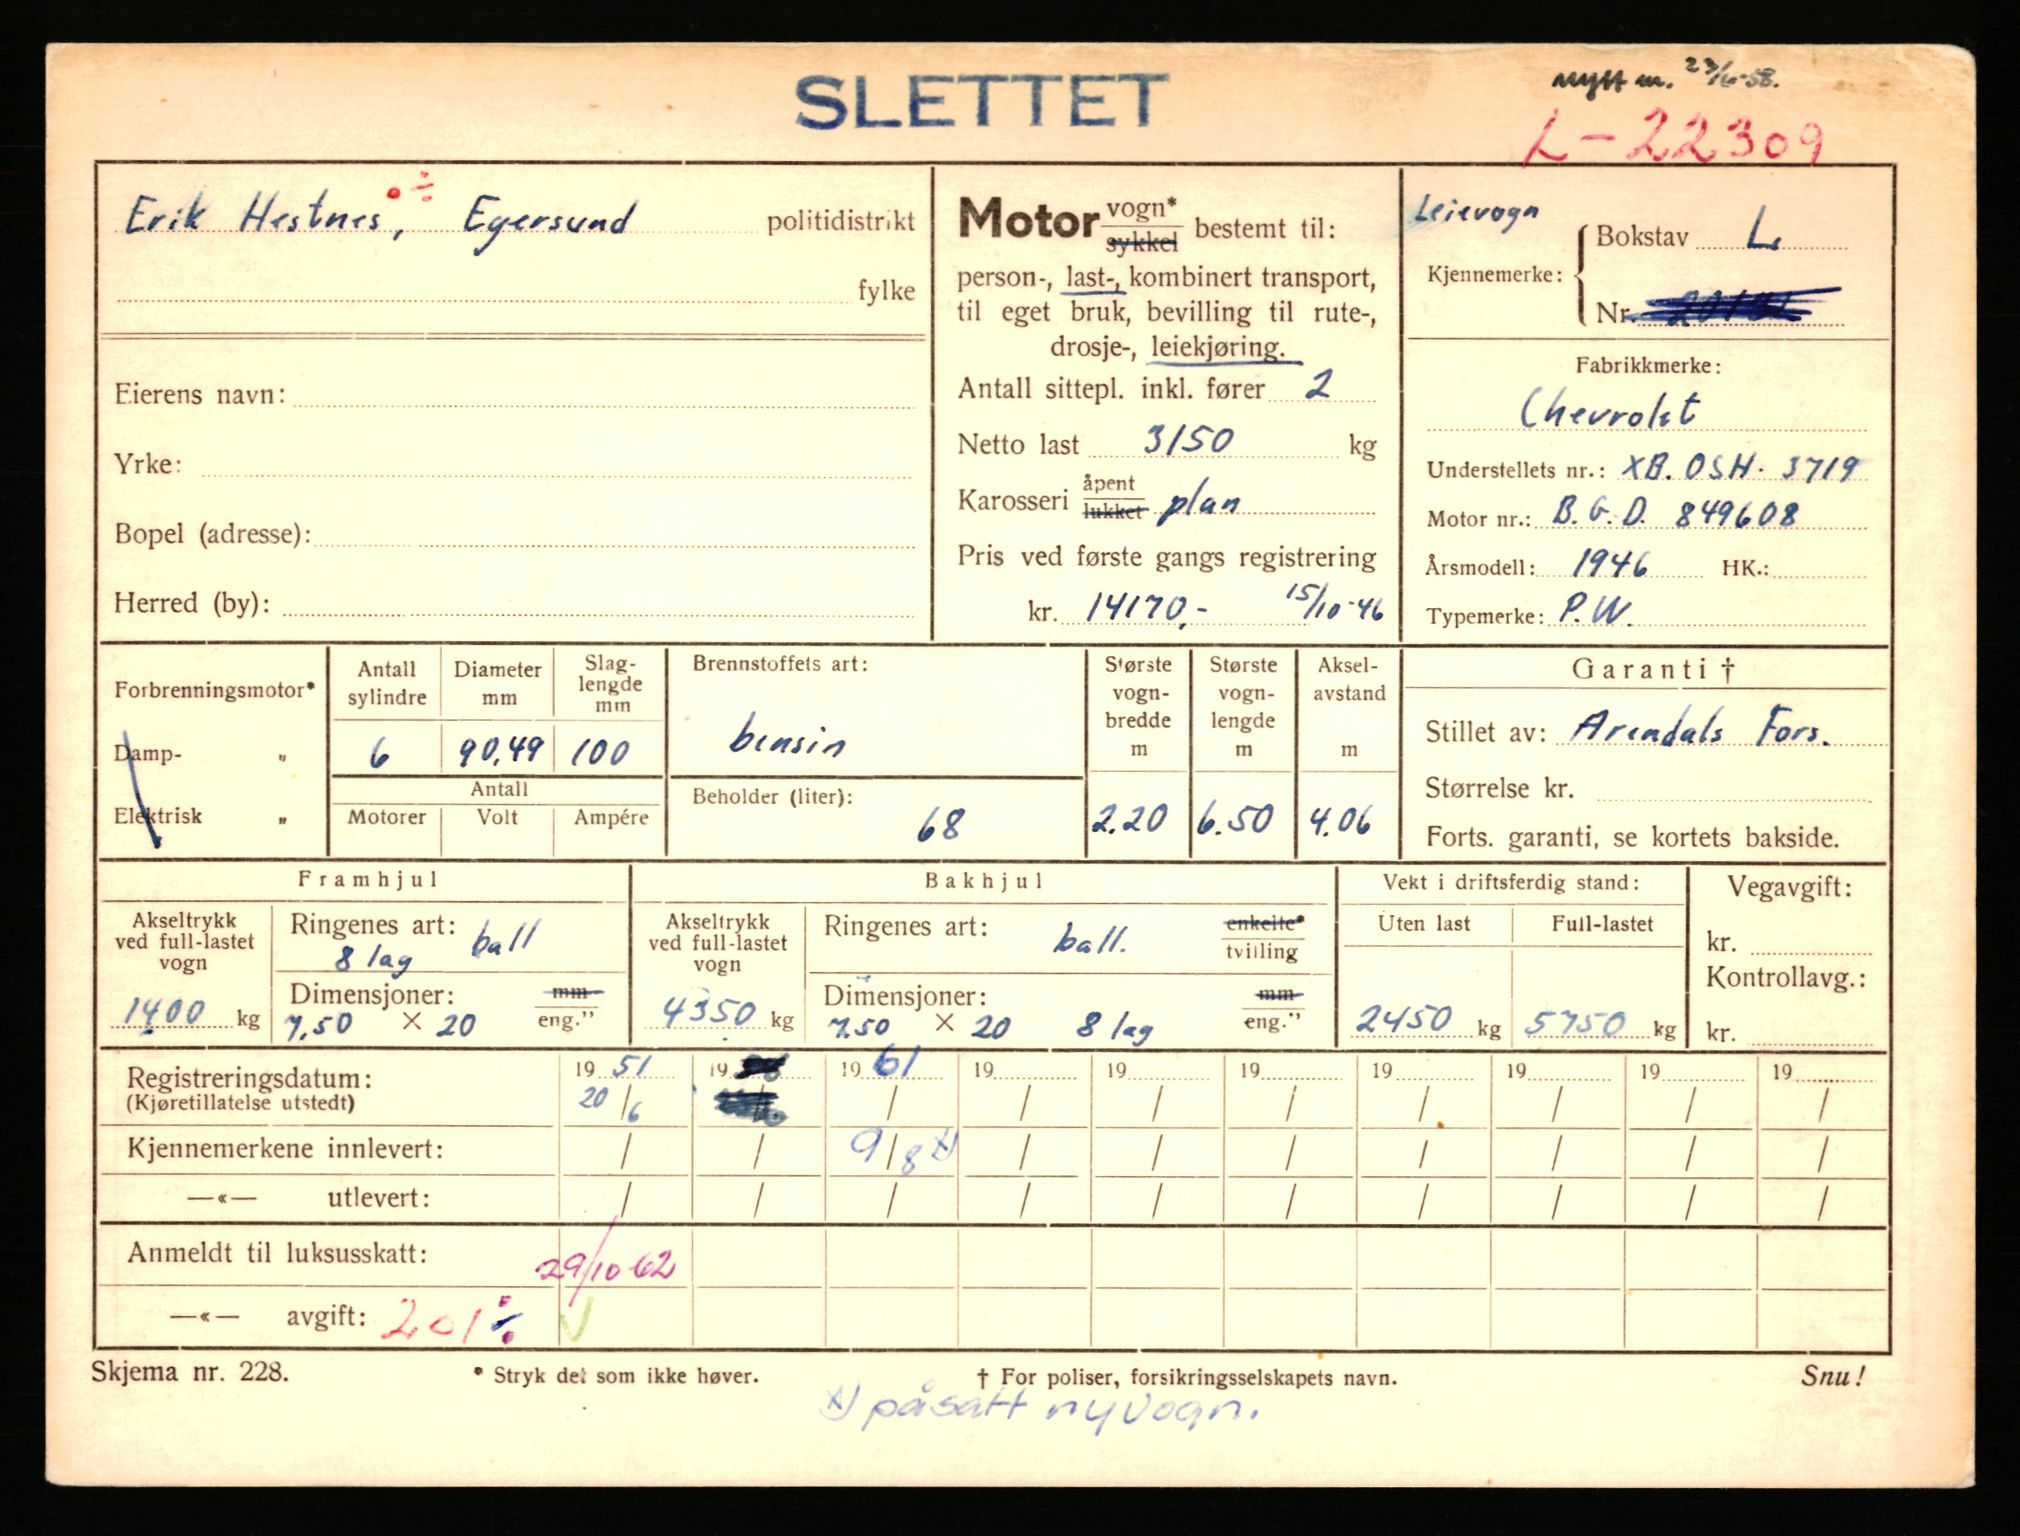 SLETTET
nytt nr. 23/6-58.
L-22309
Erik Hestnes, Egersund politidistrikt
fylke
Eierens navn:
Yrke:
Bopel (adresse):
Herred (by):
Motor vogn* sykkel bestemt til:
person-, last-, kombinert transport,
til eget bruk, bevilling til rute-,
drosje-, leiekjøring.
Antall sittepl. inkl. fører 2
Netto last 3150 kg
Karosseri åpent lukket plan
Pris ved første gangs registrering
kr. 14170,- 15/10-46
Leievogn
Kjennemerke: Bokstav L
Nr.
Fabrikkmerke:
Chevrolet
Understellets nr.: XB. OSH. 3719
Motor nr.: B.G.D. 849608
Årsmodell: 1946 HK.:
Typemerke: P.W.
Forbrenningsmotor*
Damp- "
Elektrisk "
Antall sylindre
6
Diameter mm
90,49
Slag-lengde mm
100
Antall
Motorer Volt Ampére
Brennstoffets art:
bensin
Beholder (liter):
68
Største vogn-bredde m
2.20
Største vogn-lengde m
6.50
Aksel-avstand m
4.06
Garanti †
Stillet av: Arendals Fors.
Størrelse kr.
Forts. garanti, se kortets bakside.
Framhjul
Akseltrykk ved full-lastet vogn
1400 kg
Ringenes art: ball
8 lag
Dimensjoner: mm eng."
7.50 × 20
Bakhjul
Akseltrykk ved full-lastet vogn
4350 kg
Ringenes art: ball. enkelte* tvilling
Dimensjoner: mm eng."
7.50 × 20 8 lag
Vekt i driftsferdig stand:
Uten last Full-lastet
2450 kg 5750 kg
Vegavgift:
kr.
Kontrollavg.:
kr.
Registreringsdatum: 19 51 19 19 61 19 19 19 19 19 19 19
(Kjøretillatelse utstedt) 20/6 / / / / / / / / /
Kjennemerkene innlevert: / / 9/8 x) / / / / / / /
—«— utlevert: / / / / / / / / / /
Anmeldt til luksusskatt: 29/10-62
—«— avgift: 201
Skjema nr. 228. * Stryk det som ikke høver. † For poliser, forsikringsselskapets navn. Snu!
x) påsatt ny vogn.